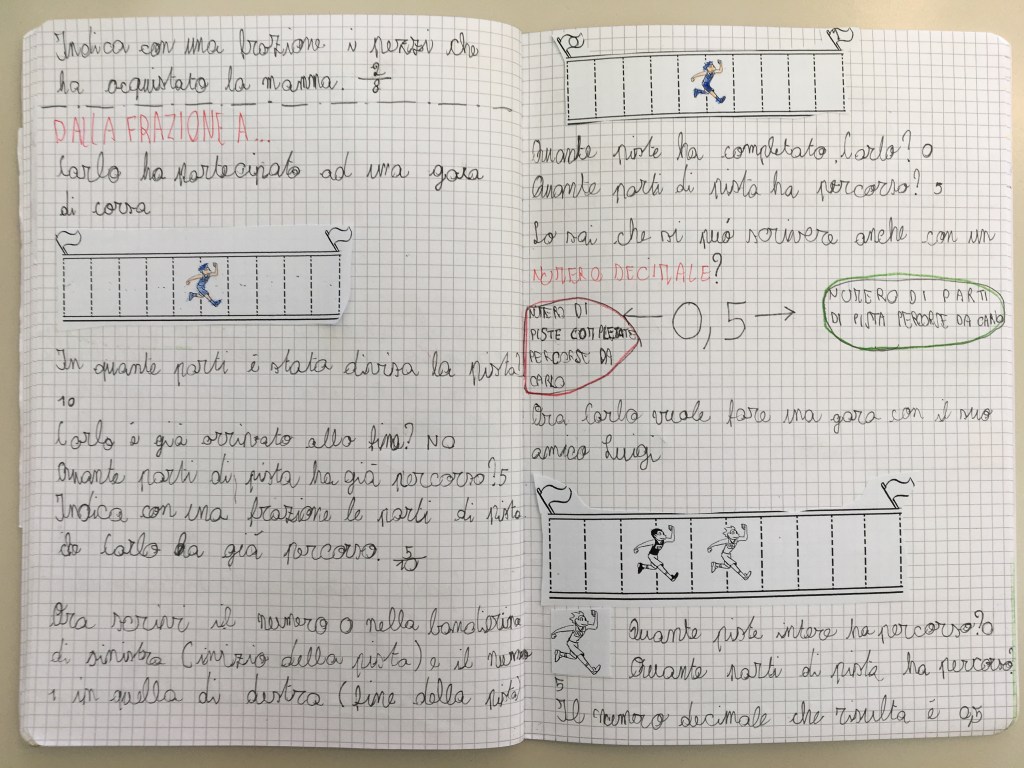 Indica con una frazione i pezzi che
ha acquistato la mamma. 2/8
DALLA FRAZIONE A...
Carlo ha partecipato ad una gara
di corsa
In quante parti è stata divisa la pista?
10
Carlo è già arrivato alla fine? NO
Quante parti di pista ha già percorso? 5
Indica con una frazione le parti di pista
che Carlo ha già percorso. 5/10
Ora scrivi il numero 0 nella bandierina
di sinistra (inizio della pista) e il numero
1 in quella di destra (fine della pista)
Quante piste ha completato Carlo? 0
Quante parti di pista ha percorso? 5
Lo sai che si può scrivere anche con un
NUMERO DECIMALE?
NUMERO DI
PISTE COMPLETATE
PERCORSE DA
CARLO
← 0,5 →
NUMERO DI PARTI
DI PISTA PERCORSE DA CARLO
Ora Carlo vuole fare una gara con il suo
amico Luigi
Quante piste intere ha percorso? 0
Quante parti di pista ha percorso?
5
Il numero decimale che risulta è 0,5